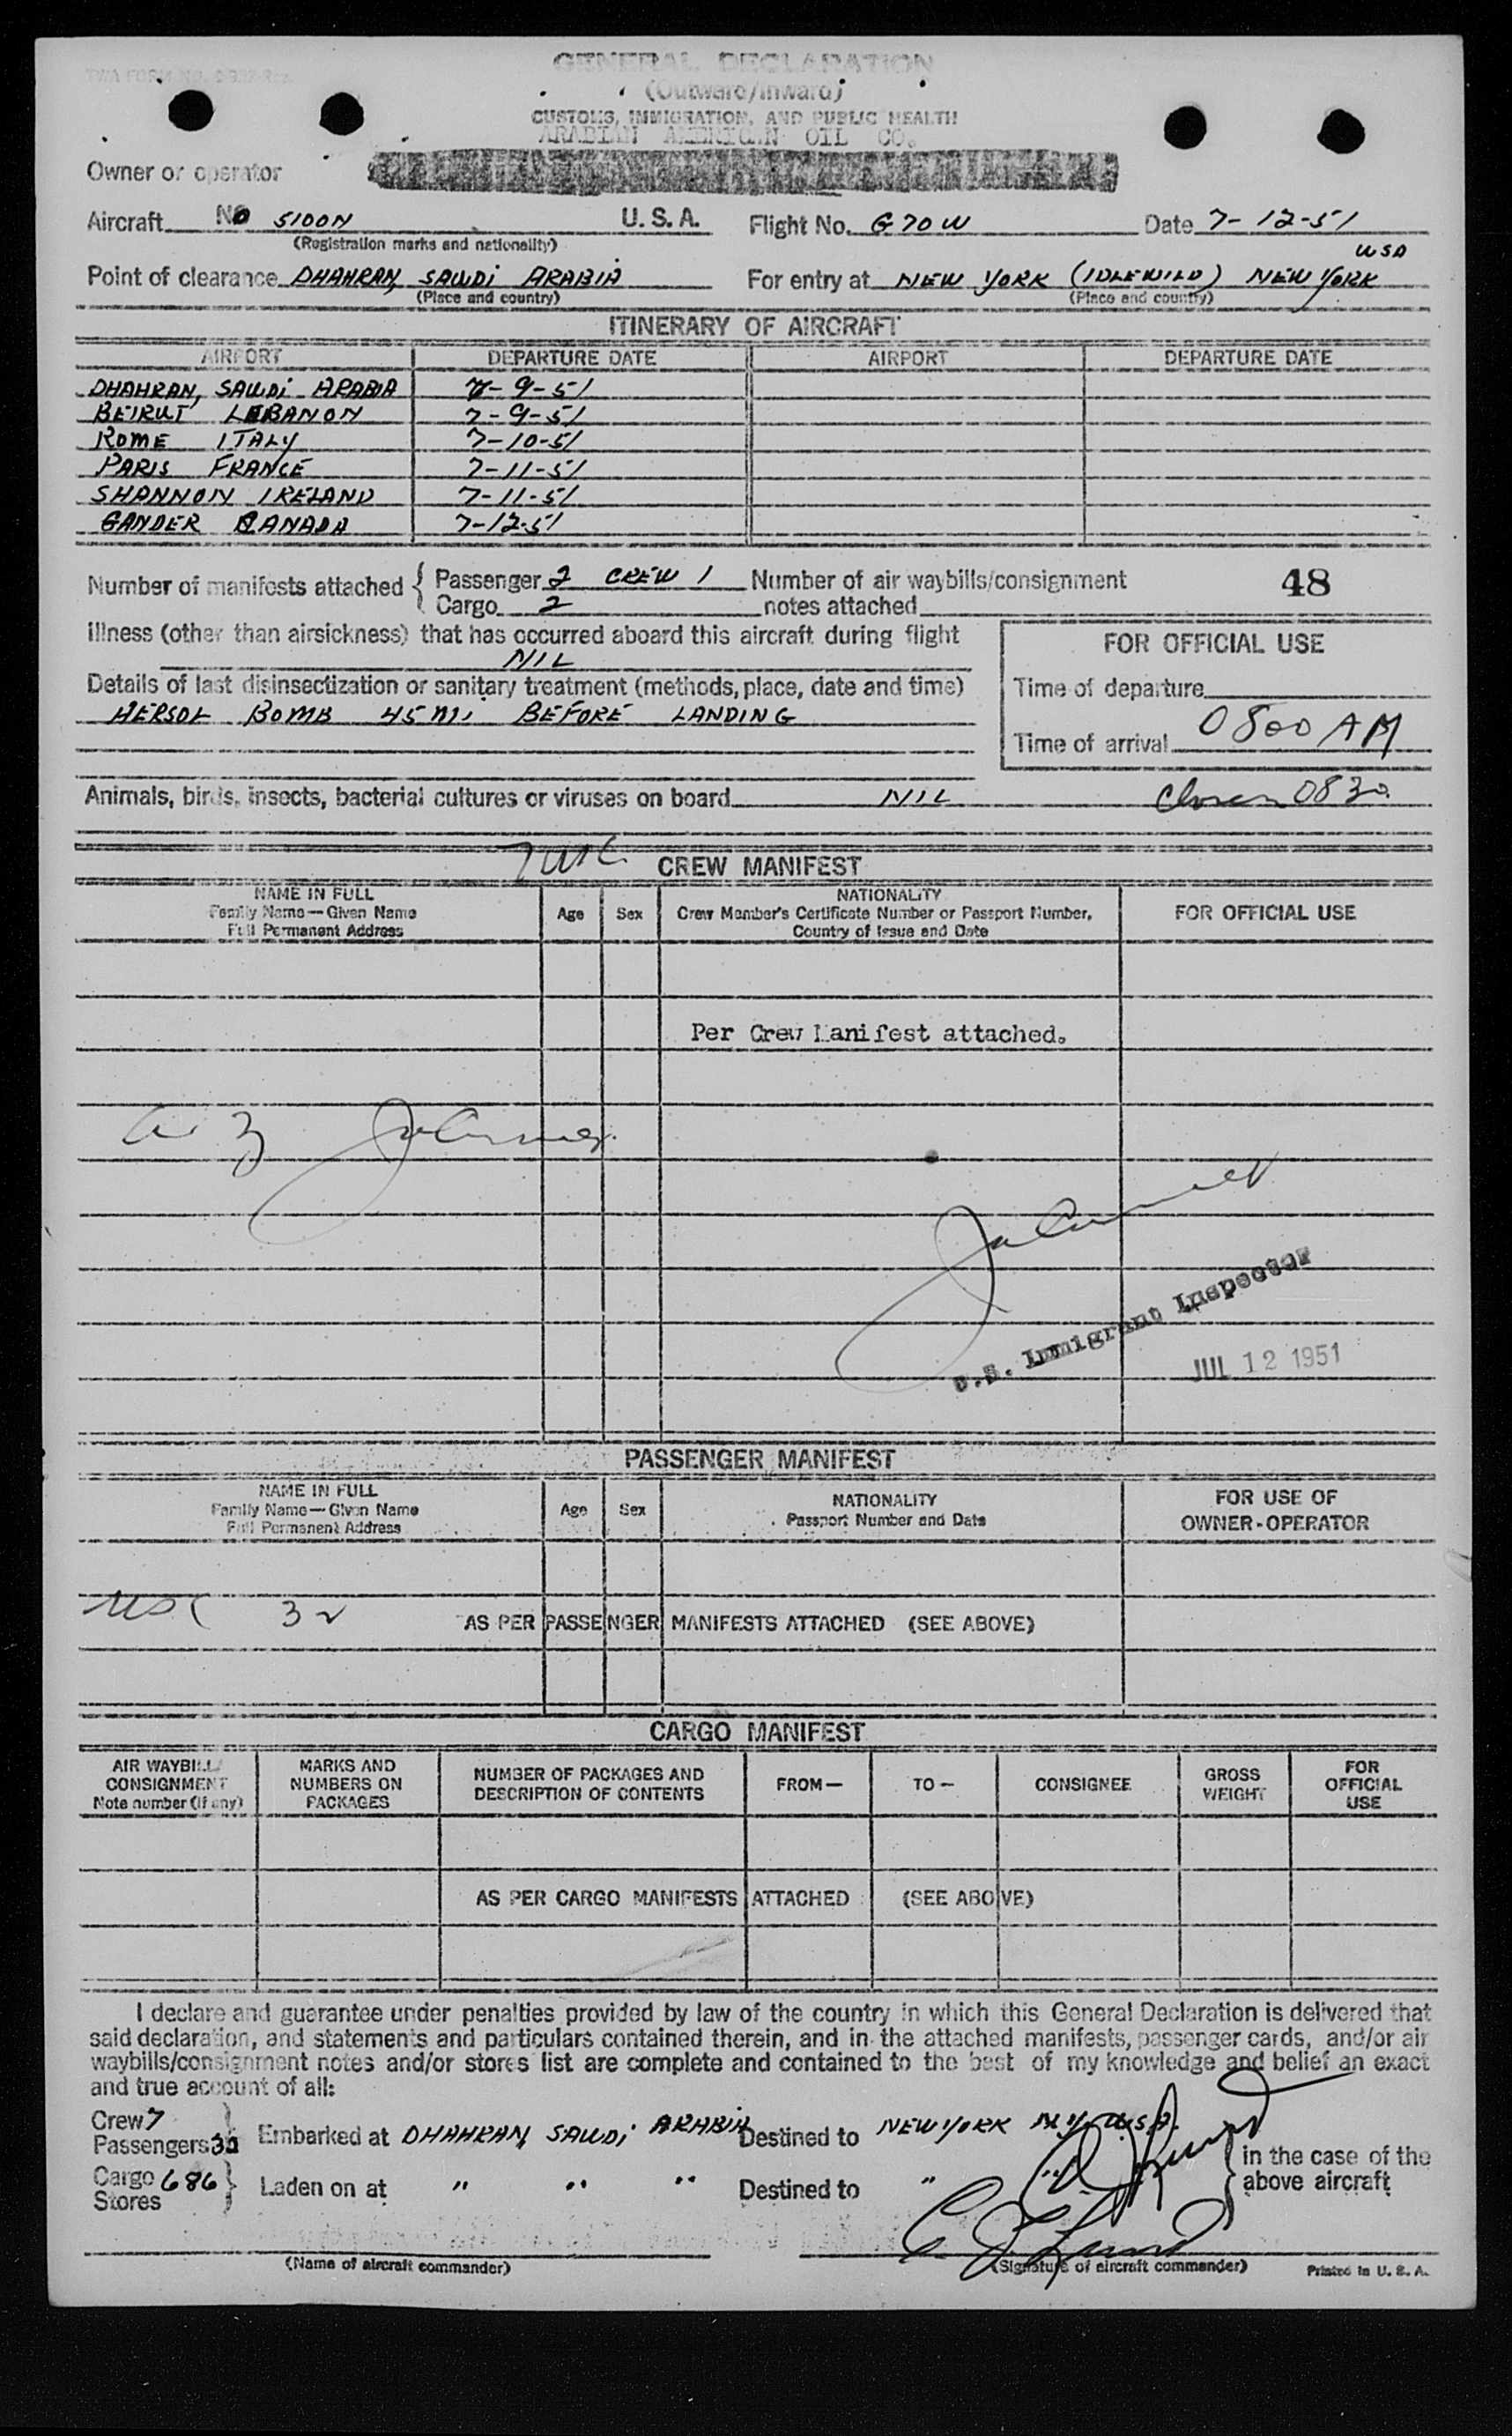 GENERAL DECLARATION
(Outward/Inward)
CUSTOMS, IMMIGRATION, AND PUBLIC HEALTH
ARABIAN AMERICAN OIL CO.
Owner or operator
Aircraft No 5100N U.S.A. Flight No. G70W Date 7-12-51
(Registration marks and nationality)
USA
Point of clearance DHAHRAN, SAUDI ARABIA For entry at NEW YORK (IDLEWILD) NEW YORK
(Place and country) (Place and country)
ITINERARY OF AIRCRAFT
AIRPORT DEPARTURE DATE AIRPORT DEPARTURE DATE
DHAHRAN, SAUDI ARABIA 7-9-51
BEIRUT LEBANON 7-9-51
ROME ITALY 7-10-51
PARIS FRANCE 7-11-51
SHANNON IRELAND 7-11-51
GANDER CANADA 7-12-51
Number of manifests attached { Passenger 2 CREW 1 Number of air waybills/consignment 48
Cargo 2 notes attached
Illness (other than airsickness) that has occurred aboard this aircraft during flight
NIL
FOR OFFICIAL USE
Details of last disinsectization or sanitary treatment (methods, place, date and time)
AERSOL BOMB 45 MI. BEFORE LANDING
Time of departure
Time of arrival 0800 AM
Animals, birds, insects, bacterial cultures or viruses on board NIL 0830
CREW MANIFEST
NAME IN FULL
Family Name—Given Name
Full Permanent Address
Age Sex
NATIONALITY
Crew Member's Certificate Number or Passport Number,
Country of Issue and Date
FOR OFFICIAL USE
Per Crew Manifest attached.
U.S. Immigrant Inspector
JUL 12 1951
PASSENGER MANIFEST
NAME IN FULL
Family Name—Given Name
Full Permanent Address
Age Sex
NATIONALITY
Passport Number and Date
FOR USE OF
OWNER-OPERATOR
USC 32 AS PER PASSENGER MANIFESTS ATTACHED (SEE ABOVE)
CARGO MANIFEST
AIR WAYBILL/
CONSIGNMENT
Note number (if any)
MARKS AND
NUMBERS ON
PACKAGES
NUMBER OF PACKAGES AND
DESCRIPTION OF CONTENTS
FROM— TO— CONSIGNEE
GROSS
WEIGHT
FOR
OFFICIAL
USE
AS PER CARGO MANIFESTS ATTACHED (SEE ABOVE)
I declare and guarantee under penalties provided by law of the country in which this General Declaration is delivered that
said declaration, and statements and particulars contained therein, and in the attached manifests, passenger cards, and/or air
waybills/consignment notes and/or stores list are complete and contained to the best of my knowledge and belief an exact
and true account of all:
Crew 7
Passengers 32 } Embarked at DHAHRAN, SAUDI ARABIA Destined to NEW YORK N.Y. U.S.A.
Cargo 686
Stores } Laden on at " " " Destined to " " } in the case of the
above aircraft
(Name of aircraft commander) (Signature of aircraft commander) Printed in U.S.A.